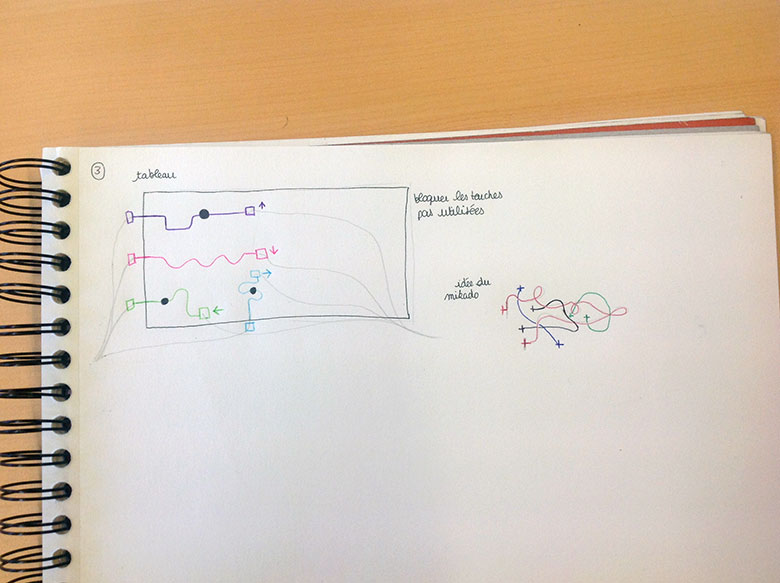 3
tableau
bloquer les touches
pas utilisées
idée du
mikado